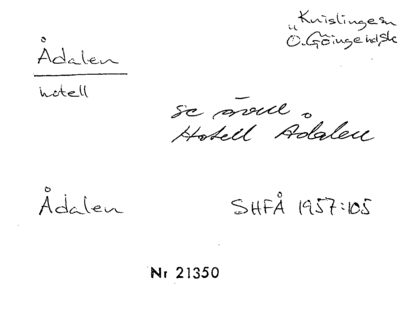 Ådalen
hotell
Knislinge sn
Ö. Göinge hd Sk
se även
Hotell Ådalen
Ådalen
SHFÅ 1957:105
Nr 21350